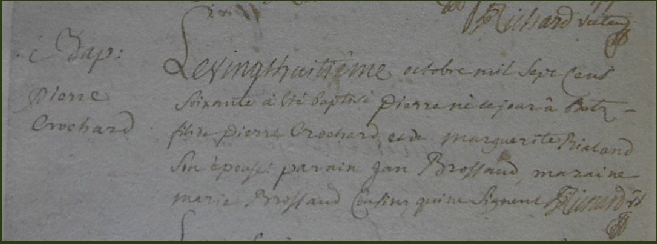 Richard
Bap:
Pierre
Crochard
Le vingthuitiême octobre mil Sept Cent
Soixante à été baptisé pierre né ce jour à Batz
fils de pierre Crochard, et de marguerite
Son épouse parain Jan Brossaud, maraine
marie Brossaud Cousins, qui ne Signent